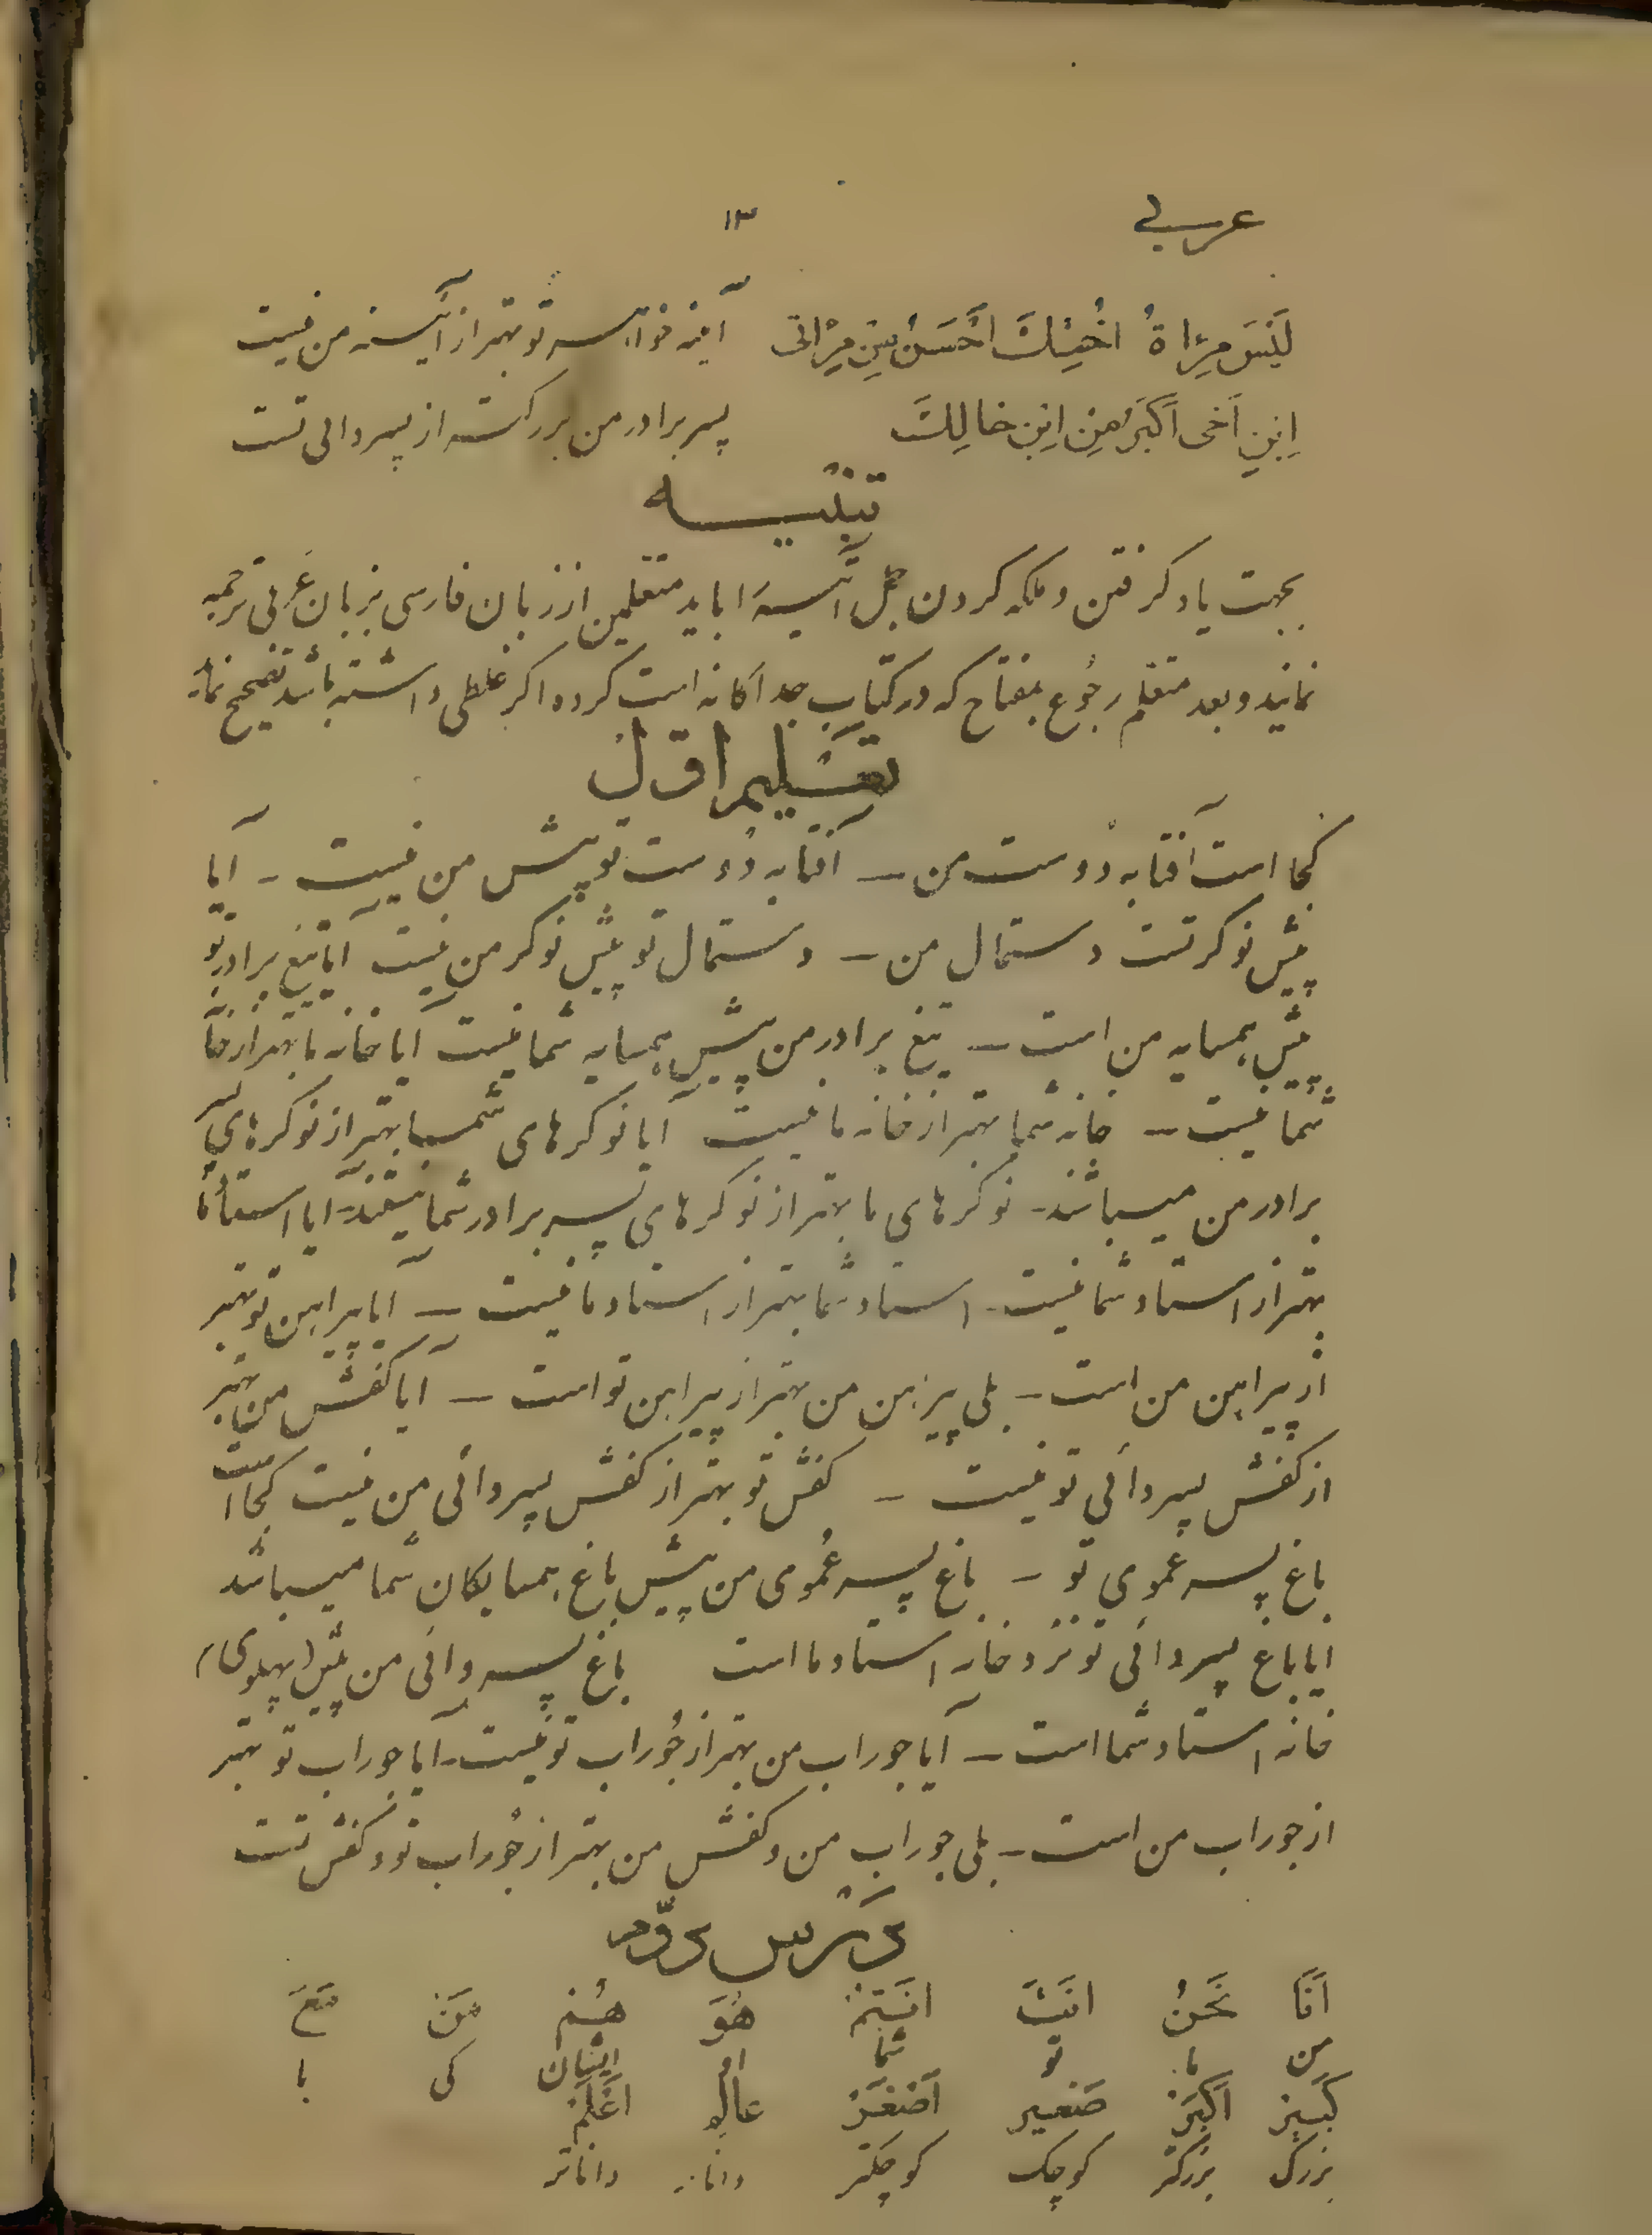 عربی ۱۳
لَیْسَ مِرْاةُ اُخْتِكَ اَحْسَنُ مِنْ مِرْاتی آینه خواهر تو بهتر از آئینه من نیست
اِبْنِ اَخی اَکْبَرُ مِنْ اِبْنِ خالِكَ پسر برادر من بزرگتر از پسر دائی تست
تنبیه
بجهت یاد گرفتن و ملکه کردن جمل آتیه را باید متعلمین از زبان فارسی بزبان عَربی ترجمه
نمایند و بعد متعلم رجُوع بمفتاح که در کتاب جداگانه است کرده اگر غلطی داشته باشد تصحیح نماید
تعلیم اوّل
کجا است آفتابه دُوست من – آفتابه دُوست تو پیش من نیست – آیا
پیش نوکر تست دستمال من – دستمال تو پیش نوکر من نیست آیا تیغ برادر تو
پیش همسایه من است – تیغ برادر من پیش همسایه شما نیست آیا خانه ما بهتر از خانه
شما نیست – خانه شما بهتر از خانه ما نیست آیا نوکرهای شما بهتر از نوکرهای پسر
برادر من میباشند – نوکرهای ما بهتر از نوکرهای پسر برادر شما نیستند – آیا استاد ما
بهتر از استاد شما نیست – استاد شما بهتر از استاد ما نیست – آیا پیراهن تو بهتر
از پیراهن من است – بلی پیراهن من بهتر از پیراهن تو است – آیا کفش من بهتر
از کفش پسر دائی تو نیست – کفش تو بهتر از کفش پسر دائی من نیست کجا است
باغ پسر عموی تو – باغ پسر عُموی من پیش باغ همسایگان شما میباشد
ایا باغ پسر دائی تو نزد خانه استاد ما است باغ پسر دائی من پیش (پهلوی)
خانه استاد شما است – آیا جوراب من بهتر از جُوراب تو نیست – آیا جوراب تو بهتر
از جوراب من است – بلی جوراب من و کفش من بهتر از جُوراب تو و کفش تست
درس دوّم
اَنَا نَحْنُ اَنْتَ اَنْتُمْ هُوَ هُمْ مَنْ مَعَ
من ما تو شما او ایشان کی با
کَبیر اَکْبَرْ صَغیر اَصْغَرْ عالِم اَعْلَمْ
بزرگ بزرگتر کوچک کوچکتر دانا داناتر